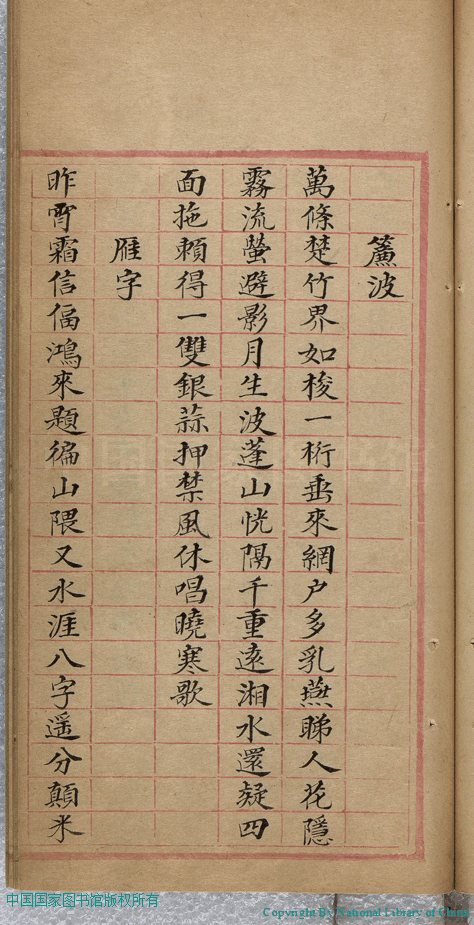 簾波
萬條楚竹界如梭一桁垂來網户多乳燕睇人花隱
霧流螢避影月生波蓬山恍隔千重遠湘水還疑四
面拖賴得一雙銀蒜押禁風休唱曉寒歌
雁字
昨宵霜信偪鴻來題徧山隈又水涯八字遥分顛米
中国国家图书馆版权所有
Copyright By National Library of China